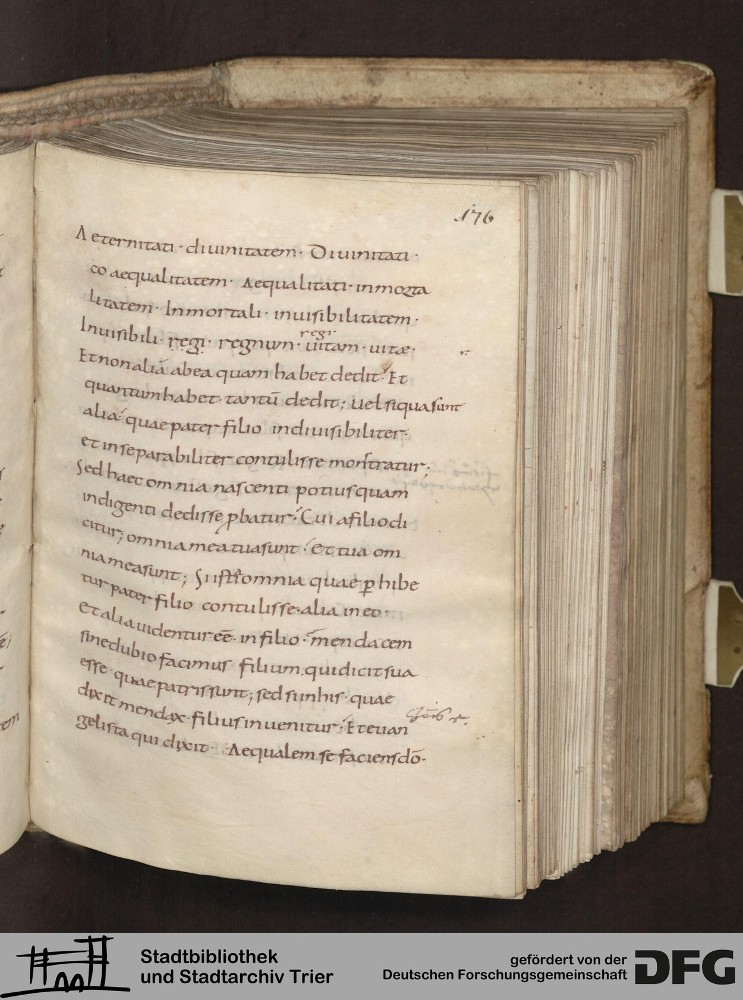 176
Aeternitati · divinitatem · Divinitati ·
coaequalitatem · Aequalitati · inmorta
litatem · Inmortali · invisibilitatem ·
regi
Invisibili · regi · regnum · uitam · uitæ ·
Et non aliā abea quam habet dedit · Et
quantum habet · tantū dedit ; uel siqua sunt
alia · quae pater filio indivisibiliter ·
et inseparabiliter contulisse monstratur ;
Sed haec omnia nascenti potius quam
indigenti dedisse ꝓbatur · Cui a filio di
citur ; omnia mea tua sunt · et tua om
nia mea sunt ; Si omnia quae ꝑ hibe
tur pater filio contulisse · alia in eo ·
Et alia uidentur eē · in filio · mendacem
sine dubio facimus filium qui dicit sua
esse · quae patris sunt ; sed si in his · quae
dixit mendax · filius inuenitur · Et euan
gelista qui dixit · Aequalem se faciens dō ·
Stadtbibliothek
und Stadtarchiv Trier
gefördert von der
Deutschen Forschungsgemeinschaft
DFG